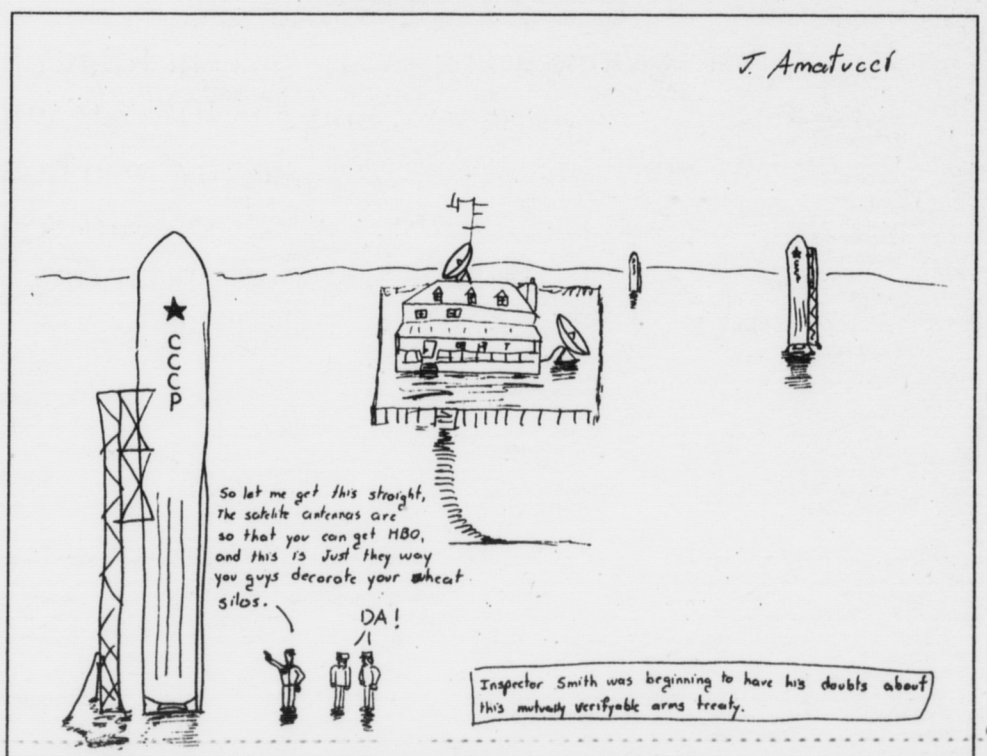 J. Amatucci
★
C
C
C
P
CCP
So let me get this straight,
The satelite antennas are
so that you can get HBO,
and this is Just they way
you guys decorate your wheat
silos.
DA!
Inspector Smith was beginning to have his doubts about
this mutually verifyable arms treaty.